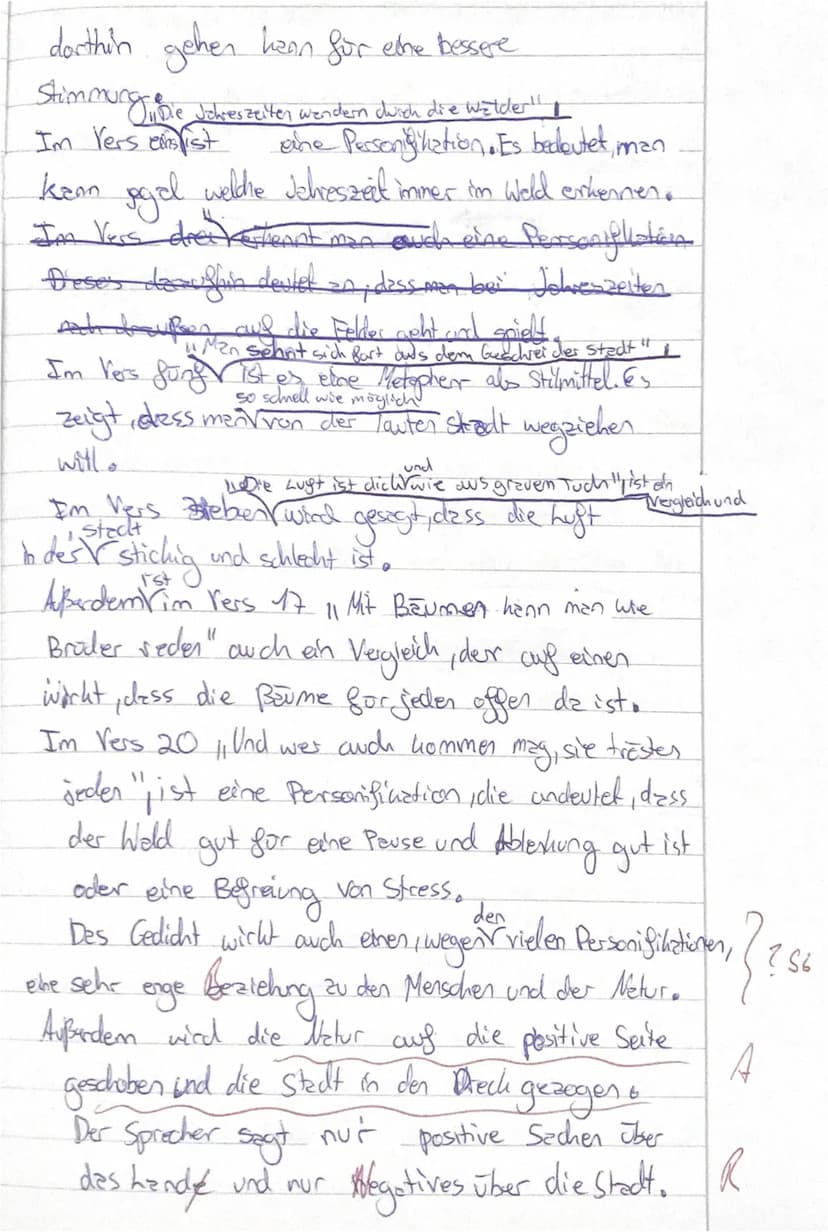 dorthin gehen kann für eine bessere
Stimmung.
„Die Jahreszeiten wandern durch die Wälder",
Im Vers eins ist eine Personifikation. Es bedeutet, man
kann egal welche Jahreszeit immer im Wald erkennen.
Im Vers drei erkennt man auch eine Personifikation
Dieses daraufhin deutet an, dass man bei Jahreszeiten
nach draußen auf die Felder geht und spielt.
„Man sehnt sich fort aus dem Geschrei der Stadt",
Im Vers fünf ist es eine Metapher als Stilmittel. Es
so schnell wie möglich
zeigt, dass man von der lauten Stadt wegziehen
will.
und
„Die Luft ist dick wie aus grauem Tuch", ist ein
Vergleich und
Im Vers sieben wird gesagt, dass die Luft
Stadt
in der stickig und schlecht ist.
ist
Außerdem im Vers 17 „Mit Bäumen kann man wie
Brüder reden" auch ein Vergleich, der auf einen
wirkt, dass die Bäume für jeden offen da ist.
Im Vers 20 „Und wer auch kommen mag, sie trösten
jeden", ist eine Personifikation, die andeutet, dass
der Wald gut für eine Pause und Ablenkung gut ist
oder eine Befreiung von Stress.
den
Das Gedicht wirkt auch einen, wegen vielen Personifikationen,
? Sb
eine sehr enge Beziehung zu den Menschen und der Natur.
Außerdem wird die Natur auf die positive Seite
A
geschoben und die Stadt in den Dreck gezogen.
Der Sprecher sagt nur positive Sachen über
das Land und nur Negatives über die Stadt.
R